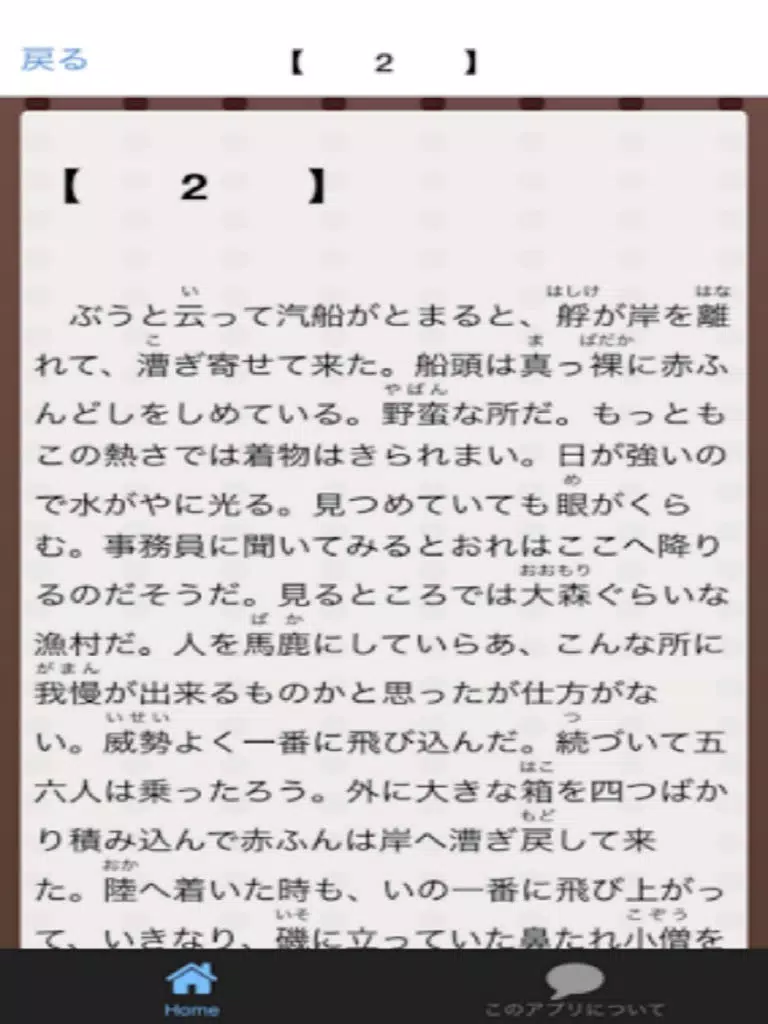 戻る
【　　2　　】
【　　2　　】
い　はしけ　はな
ぶうと云って汽船がとまると、艀が岸を離
こ　ま　ぱだか
れて、漕ぎ寄せて来た。船頭は真っ裸に赤ふ
やばん
んどしをしめている。野蛮な所だ。もっとも
この熱さでは着物はきられまい。日が強いの
め
で水がやに光る。見つめていても眼がくら
む。事務員に聞いてみるとおれはここへ降り
おおもり
るのだそうだ。見るところでは大森ぐらいな
ばか
漁村だ。人を馬鹿にしていらあ、こんな所に
がまん
我慢が出来るものかと思ったが仕方がな
いせい　つ
い。威勢よく一番に飛び込んだ。続づいて五
はこ
六人は乗ったろう。外に大きな箱を四つばか
もど
り積み込んで赤ふんは岸へ漕ぎ戻して来
おか
た。陸へ着いた時も、いの一番に飛び上がっ
いそ　こぞう
て、いきなり、磯に立っていた鼻たれ小僧を
Home
このアプリについて